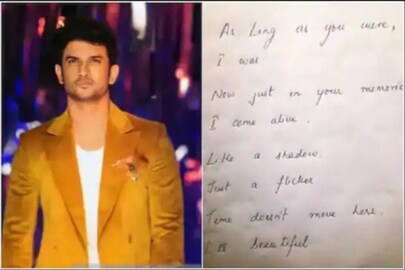 As long as you were,
I was
Now just in your memories
I come alive.
Like a shadow,
Just a flicker
Time doesn't move here.
It is beautiful